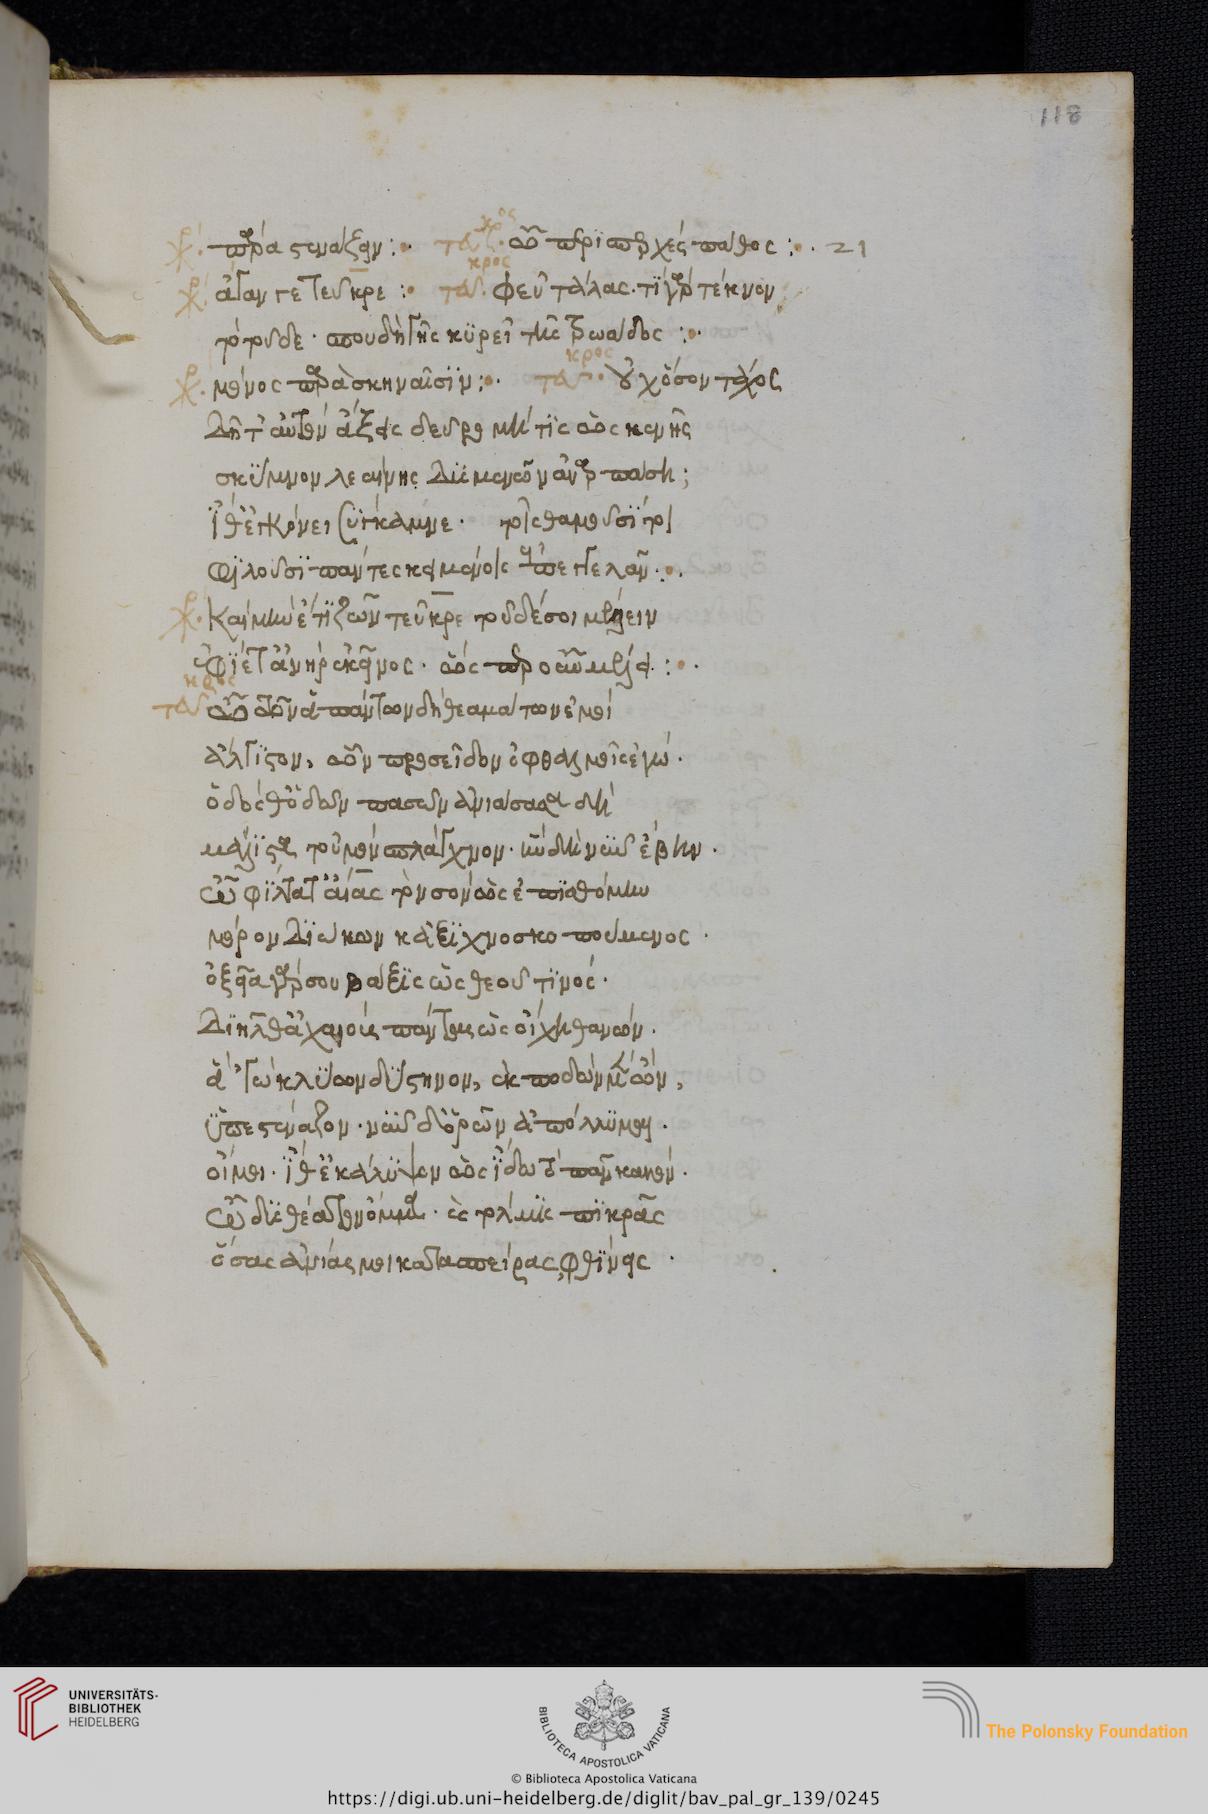 118
χρ. πάρα στενάζειν :· τεῦκρος. ὦ περισπερχὲς πάθος :· 21
χρ. ἄγαν γε τεῦκρε :· τεῦκρος. φεῦ τάλας. τί γὰρ τέκνον
τὸ τοῦδε. ποῦ δὴ γῆς κυρεῖ τῆς τρωάδος :·
χρ. μόνος παρὰ σκηναῖσιν :· τεῦκρος. οὐχ ὅσον τάχος
δῆτ' αὐτὸν ἄξεις δεῦρο μή τις ὡς κενῆς
σκύμνον λεαίνης δυσμενῶν ἀναρπάσῃ;
ἴθ' ἐγκόνει σύγκαμνε. τοῖς θανοῦσί τοι
φιλοῦσι πάντες κειμένοις ἐπεγγελᾶν.
χρ. καὶ μὴν ἔτι ζῶν τεῦκρε τοῦδέ σοι μέλειν
ἐφίετ' ἀνὴρ ἐκεῖνος. ὥσπερ οὖν μέλει :·
τεῦκρος ὦ τῶν ἁπάντων δὴ θεαμάτων ἐμοὶ
ἄλγιστον, ὧν προσεῖδον ὀφθαλμοῖς ἐγώ.
ὁδός θ' ὁδῶν πασῶν ἀνιάσασα δὴ
μάλιστα τοὐμὸν σπλάγχνον. ἣν δὴ νῦν ἔβην.
ὦ φίλτατ' αἴας τὸν σὸν ὡς ἐπῃσθόμην
μόρον διώκων κἀξιχνοσκοπούμενος.
ὀξεῖα γάρ σου βάξις ὡς θεοῦ τινός.
διῆλθ' ἀχαιοὺς πάντας ὡς οἴχῃ θανών.
ἁγὼ κλύων δύστηνον, ἐκποδὼν μὲν ὤν,
ὑπεστέναζον. νῦν δ' ὁρῶν ἀπόλλυμαι.
οἴμοι. ἴθ' ἐκκάλυψον ὡς ἴδω τὸ πᾶν κακόν.
ὦ δυσθέατον ὄμμα. καὶ τόλμης πικρᾶς
ὅσας ἀνίας μοι κατασπείρας φθίνεις.
UNIVERSITÄTS-
BIBLIOTHEK
HEIDELBERG
BIBLIOTECA APOSTOLICA VATICANA
The Polonsky Foundation
© Biblioteca Apostolica Vaticana
https://digi.ub.uni-heidelberg.de/diglit/bav_pal_gr_139/0245